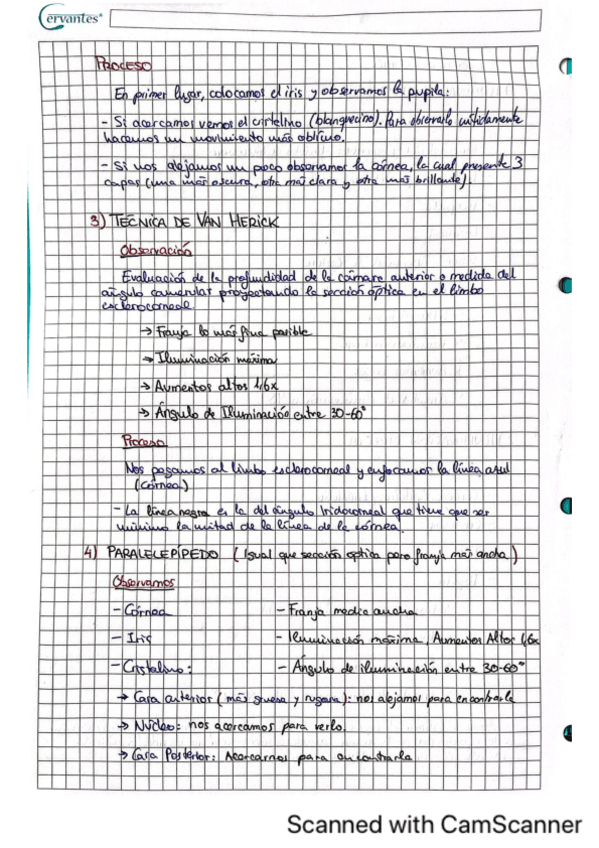 Cervantes
PROCESO
En primer lugar, colocamos el iris y observamos la pupila:
- Si acercamos vemos el cristalino (blanquecino). Para observarlo nítidamente
hacemos un movimiento más oblicuo.
- Si nos alejamos un poco observamos la córnea, la cual presenta 3
capas (una más oscura, otra más clara y otra más brillante).
3) TÉCNICA DE VAN HERICK
Observación
Evaluación de la profundidad de la cámara anterior o medida del
ángulo camerular proyectando la sección óptica en el limbo
esclerocorneal.
→ Franja lo más fina posible
→ Iluminación máxima
→ Aumentos altos 1,6x
→ Ángulo de Iluminación entre 30-60°
Proceso
Nos pegamos al limbo esclerocorneal y enfocamos la línea azul
(córnea)
- La línea negra es la del ángulo Iridocorneal que tiene que ser
mínimo la mitad de la línea de la córnea.
4) PARALELEPÍPEDO (Igual que sección óptica pero franja más ancha)
Observamos
- Córnea - Franja media ancha
- Iris - Iluminación máxima, Aumentos Altos 1,6x
- Cristalino: - Ángulo de iluminación entre 30-60°
→ Cara anterior (más gruesa y rugosa): nos alejamos para encontrarla
→ Núcleo: nos acercamos para verlo.
→ Cara Posterior: Acercarnos para encontrarla
Scanned with CamScanner